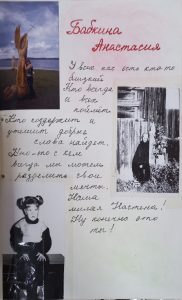 Бабкина
Анастасия
У всех нас есть кто-то
близкий
Кто всегда
и всех
поймёт.
Кто поддержит и
утешит добры
слова найдёт.
Кто-то с кем
всегда мы можем
разделить свои
мечты.
Наша
милая Настена!
Ну конечно это
ты!